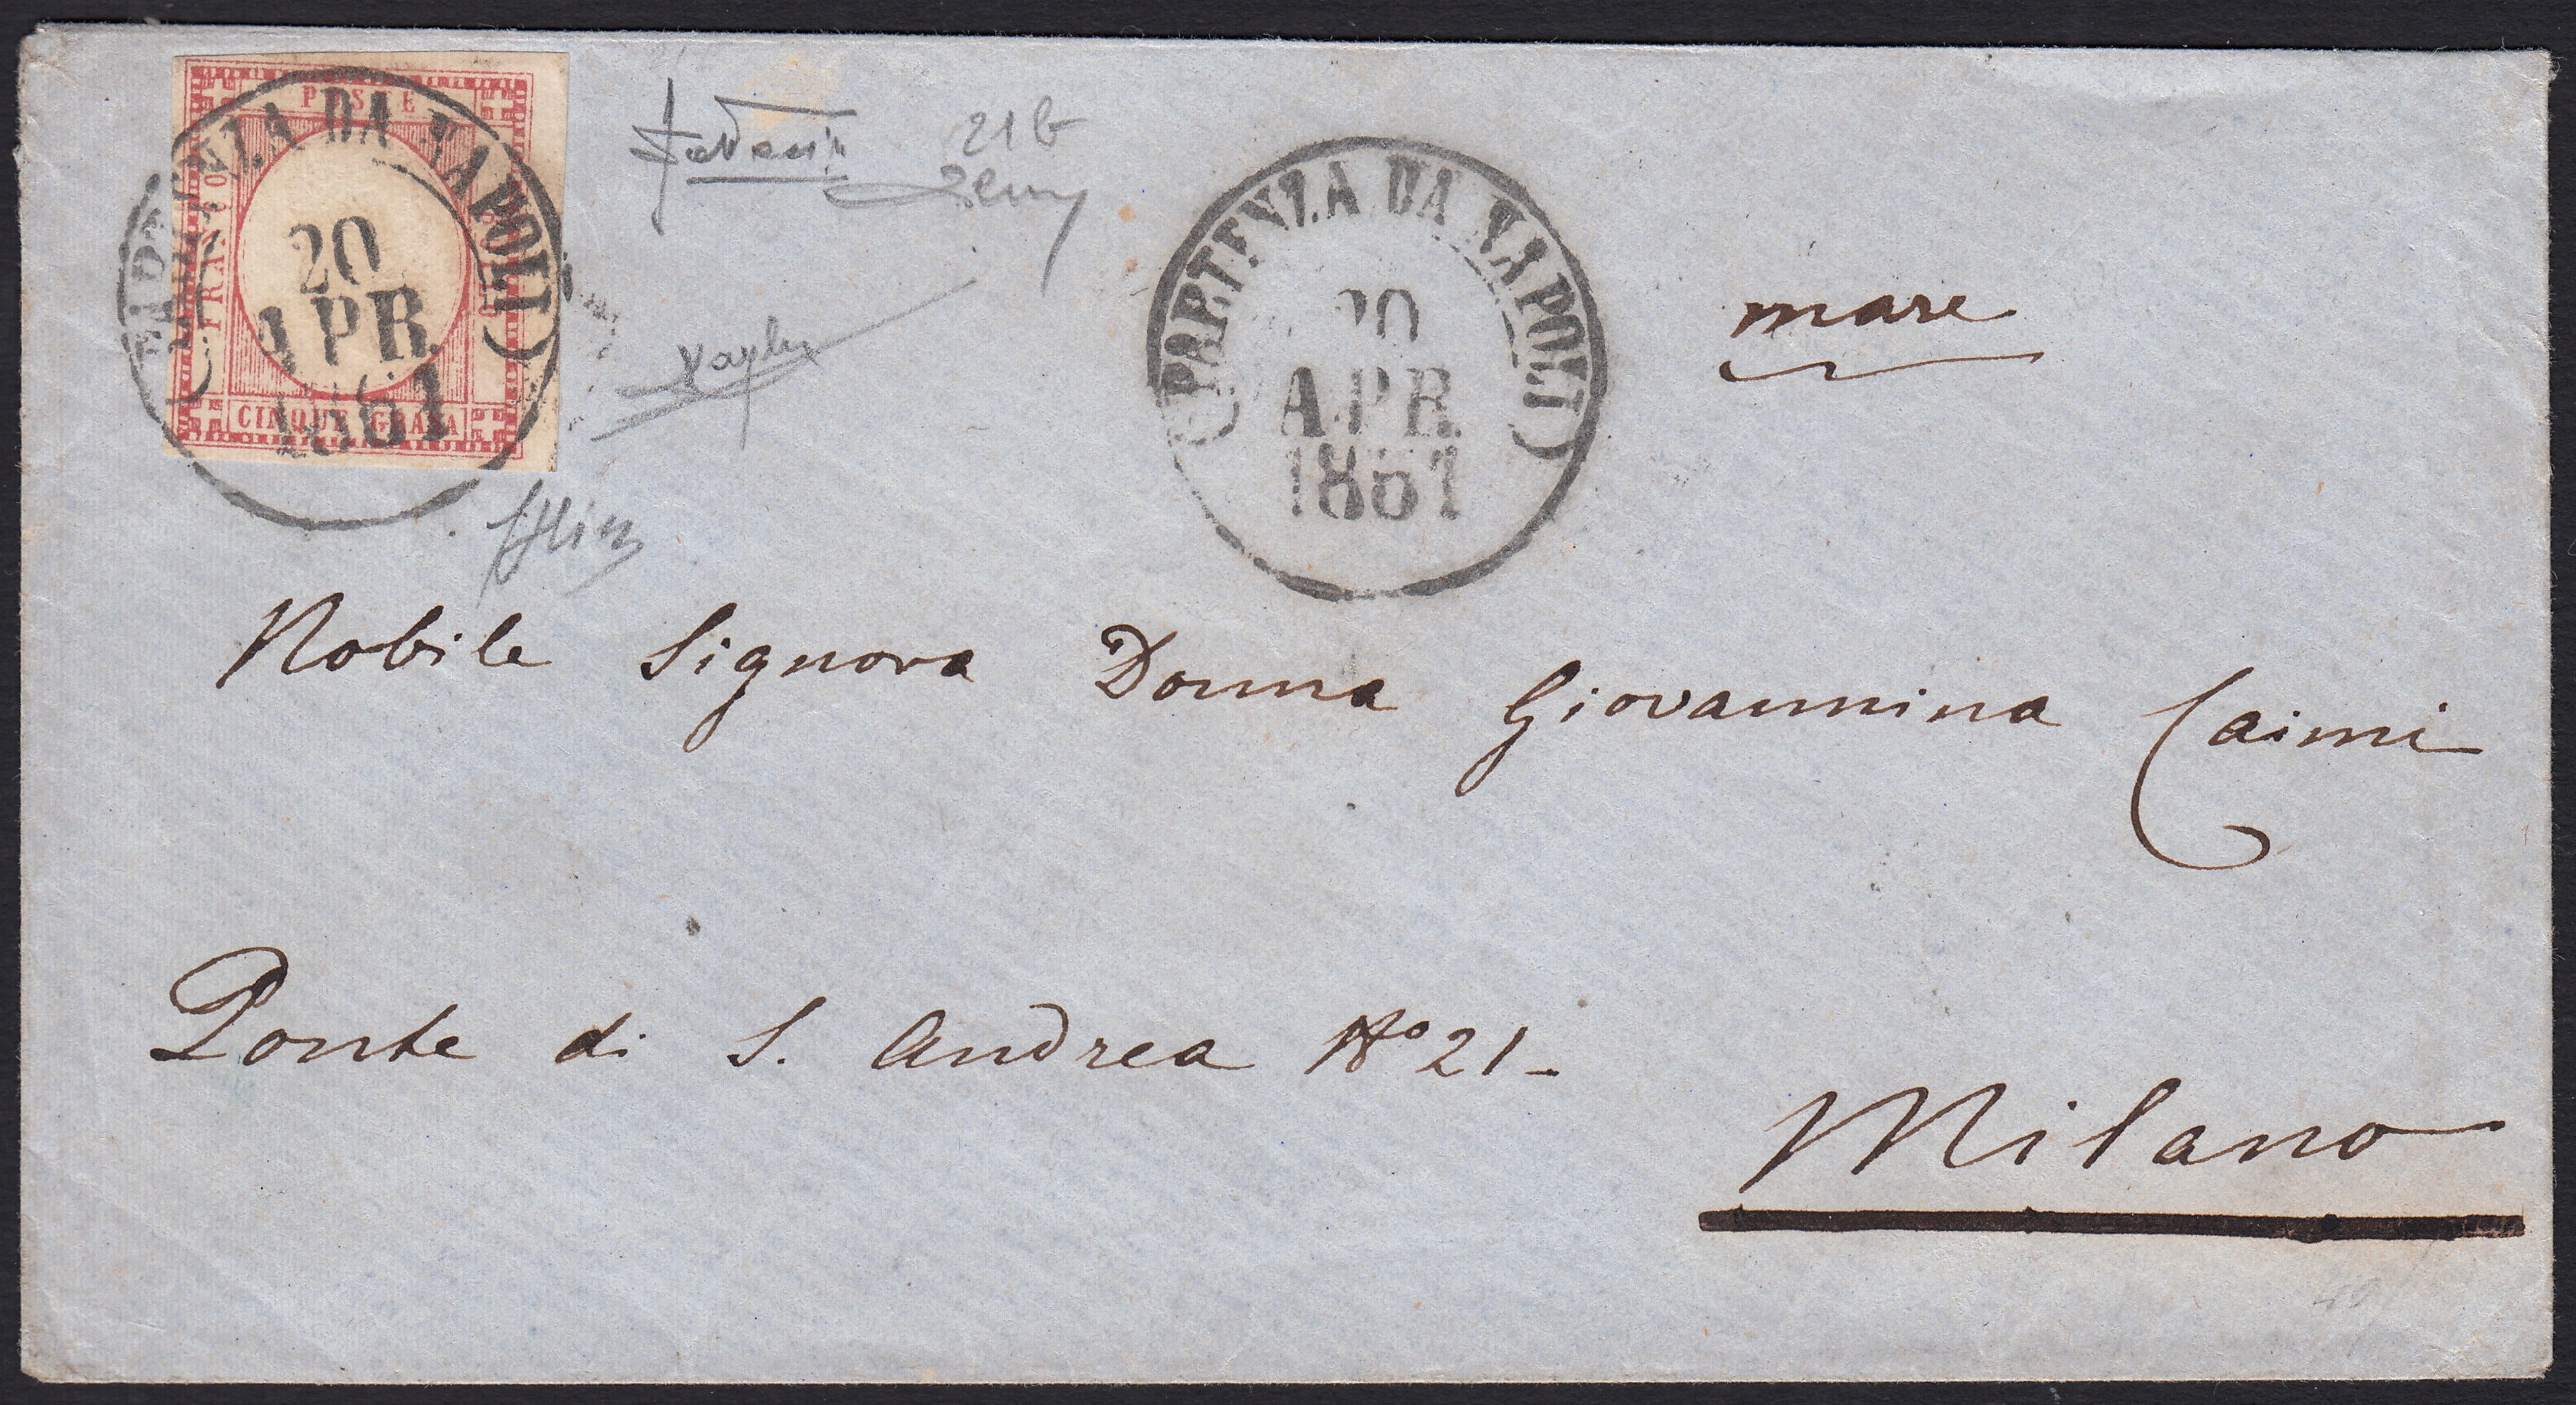 POSTE
FRANCO
CINQUE GRANA
(PARTENZA DA NAPOLI)
20
APR
1861
21 b
(PARTENZA DA NAPOLI)
20
APR
1861
mare
Nobile Signora Donna Giovannina Caimi
Ponte di S. Andrea No 21-
Milano